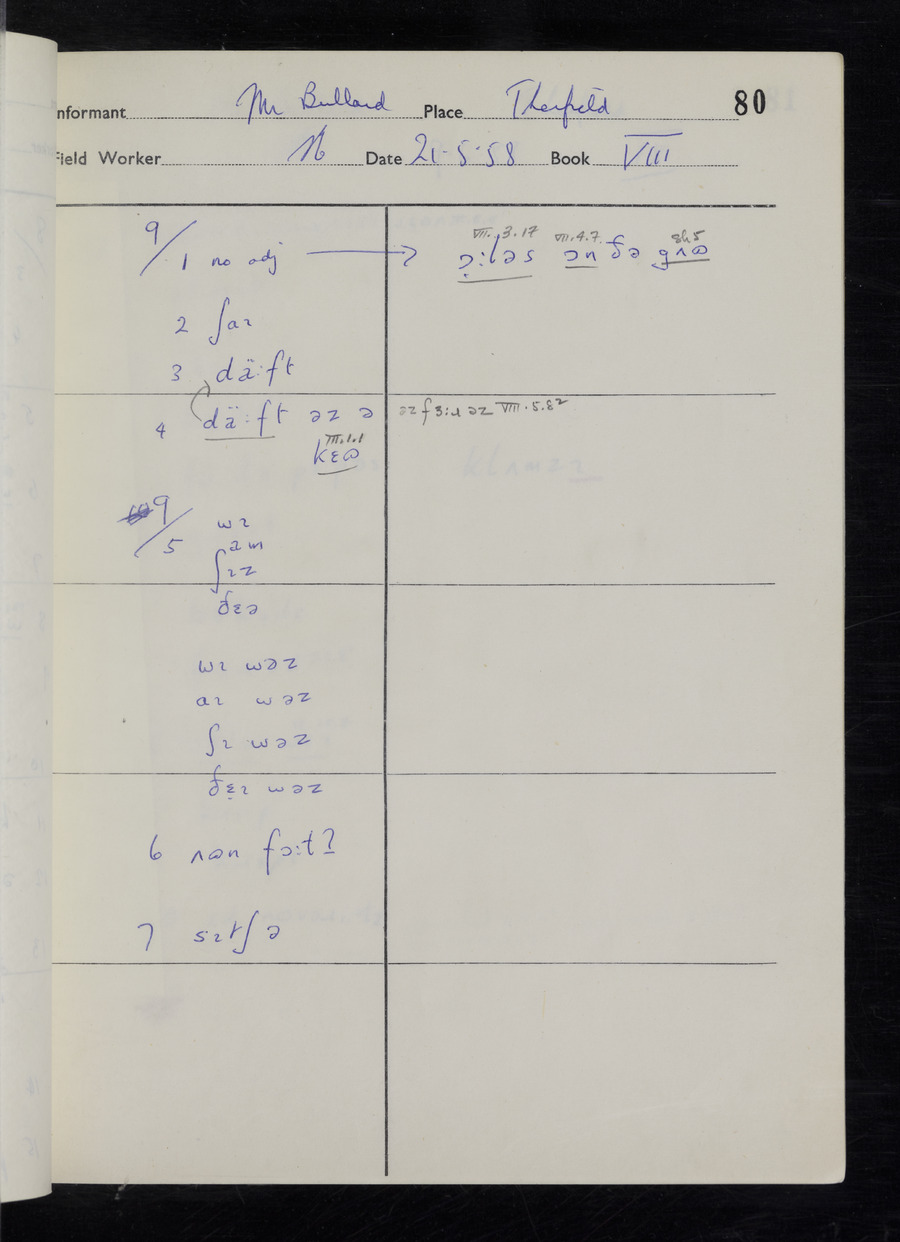 Informant Mr Bullard Place Therfield 80
Field Worker Date 21·5·58 Book VIII
9/1 no adj → ɔ̣:ləs ɔn ðə gʌɷ
VII.3.17 VII.4.7 sh5
2 ʃaɪ
3 dä:ft
4 dä:ft əz ə əz f3:ɹ əz VIII.5.8²
III.1.1
kɛɷ
9/5 wɪ
am
ʃɪz
ðɛə
wɪ wəz
aɪ wəz
ʃɪ wəz
ðɛ̣ɪ wəz
6 ʌɷn fɔ:t?
7 sɪtʃ ə